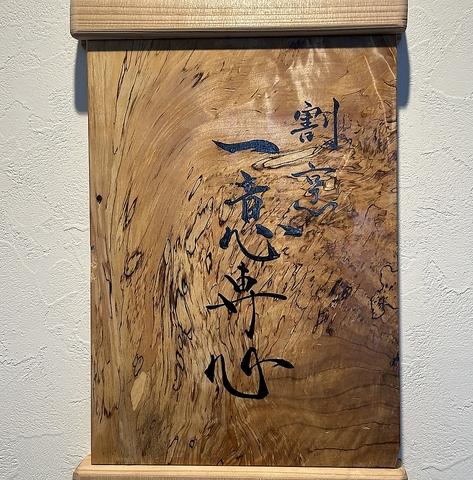 割烹
一意専心